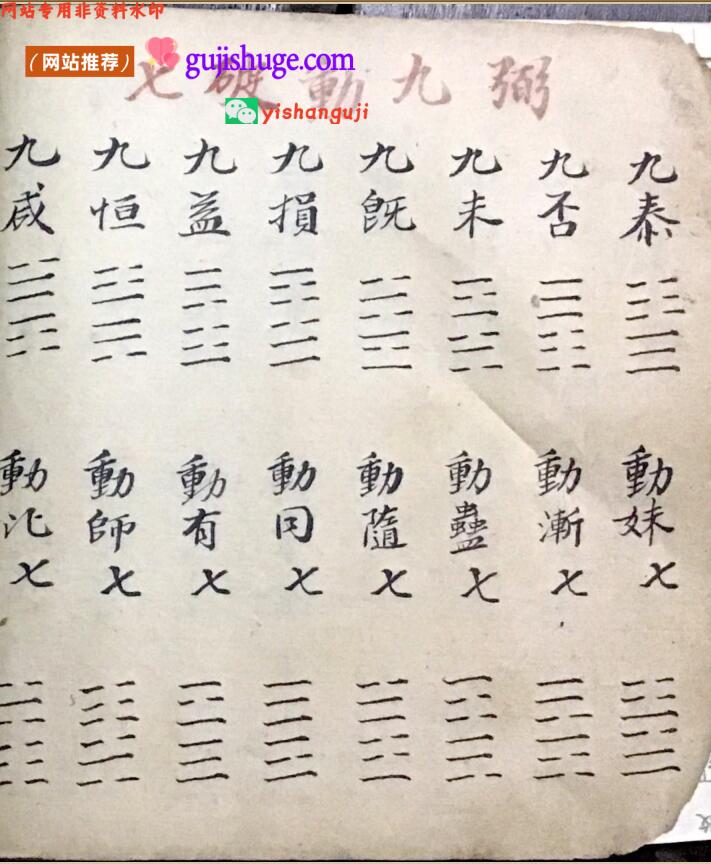 网站专用非资料水印
（网站推荐） gujishuge.com
yishanguji
弼九動破七
九泰
九否
九未
九既
九損
九益
九恒
九咸
動妹七
動漸七
動蠱七
動隨七
動同七
動有七
動師七
動比七